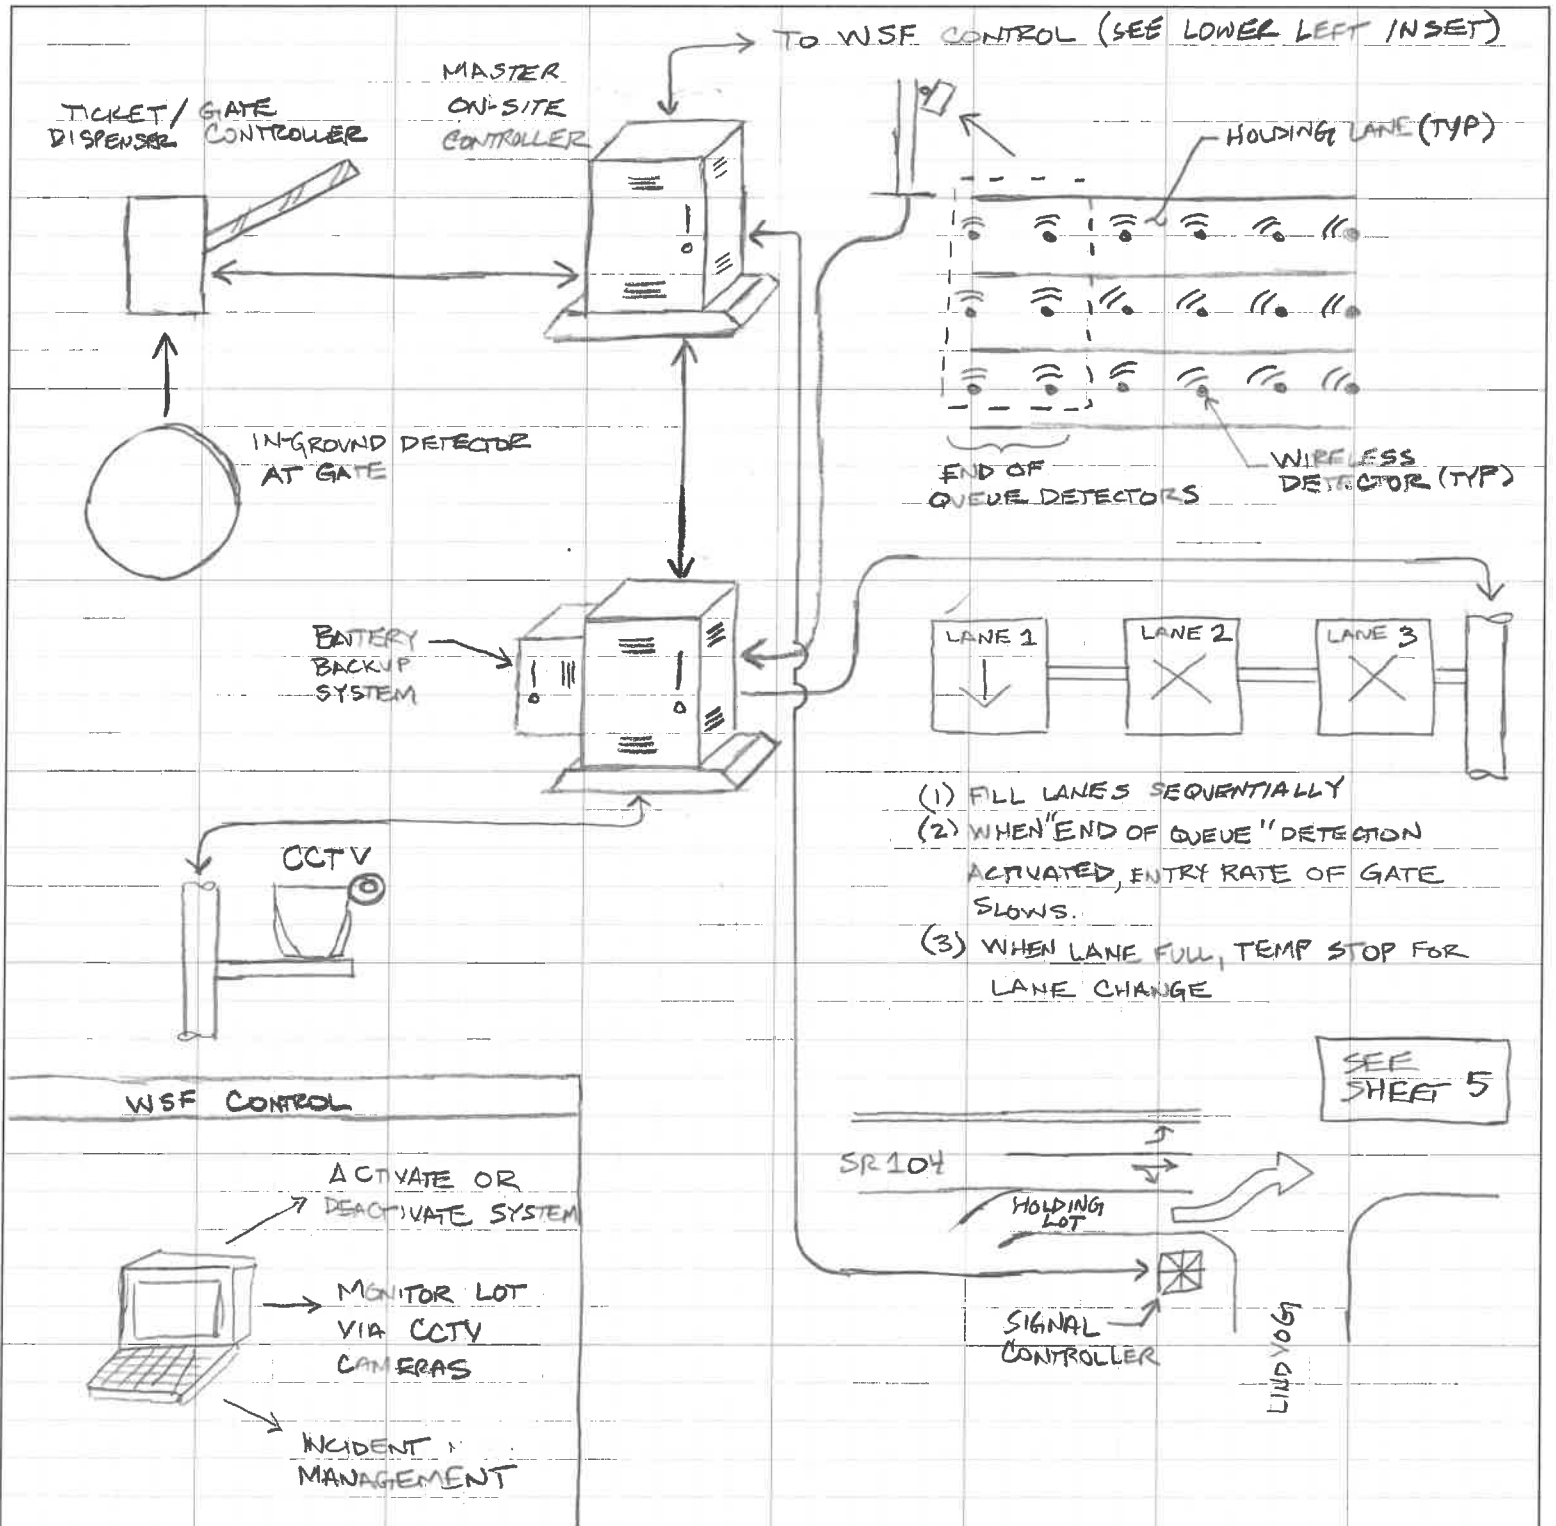 TO WSF CONTROL (SEE LOWER LEFT INSET)
MASTER
ON-SITE
CONTROLLER
TICKET / GATE
DISPENSER CONTROLLER
HOLDING LANE (TYP)
IN-GROUND DETECTOR
AT GATE
END OF
QUEUE DETECTORS
WIRELESS
DETECTOR (TYP)
BATTERY
BACKUP
SYSTEM
LANE 1
LANE 2
LANE 3
(1) FILL LANES SEQUENTIALLY
(2) WHEN "END OF QUEUE" DETECTION
ACTIVATED, ENTRY RATE OF GATE
SLOWS.
(3) WHEN LANE FULL, TEMP STOP FOR
LANE CHANGE
CCTV
SEE
SHEET 5
WSF CONTROL
ACTIVATE OR
DEACTIVATE SYSTEM
MONITOR LOT
VIA CCTV
CAMERAS
INCIDENT
MANAGEMENT
SR 104
HOLDING
LOT
SIGNAL
CONTROLLER
LINDVOG